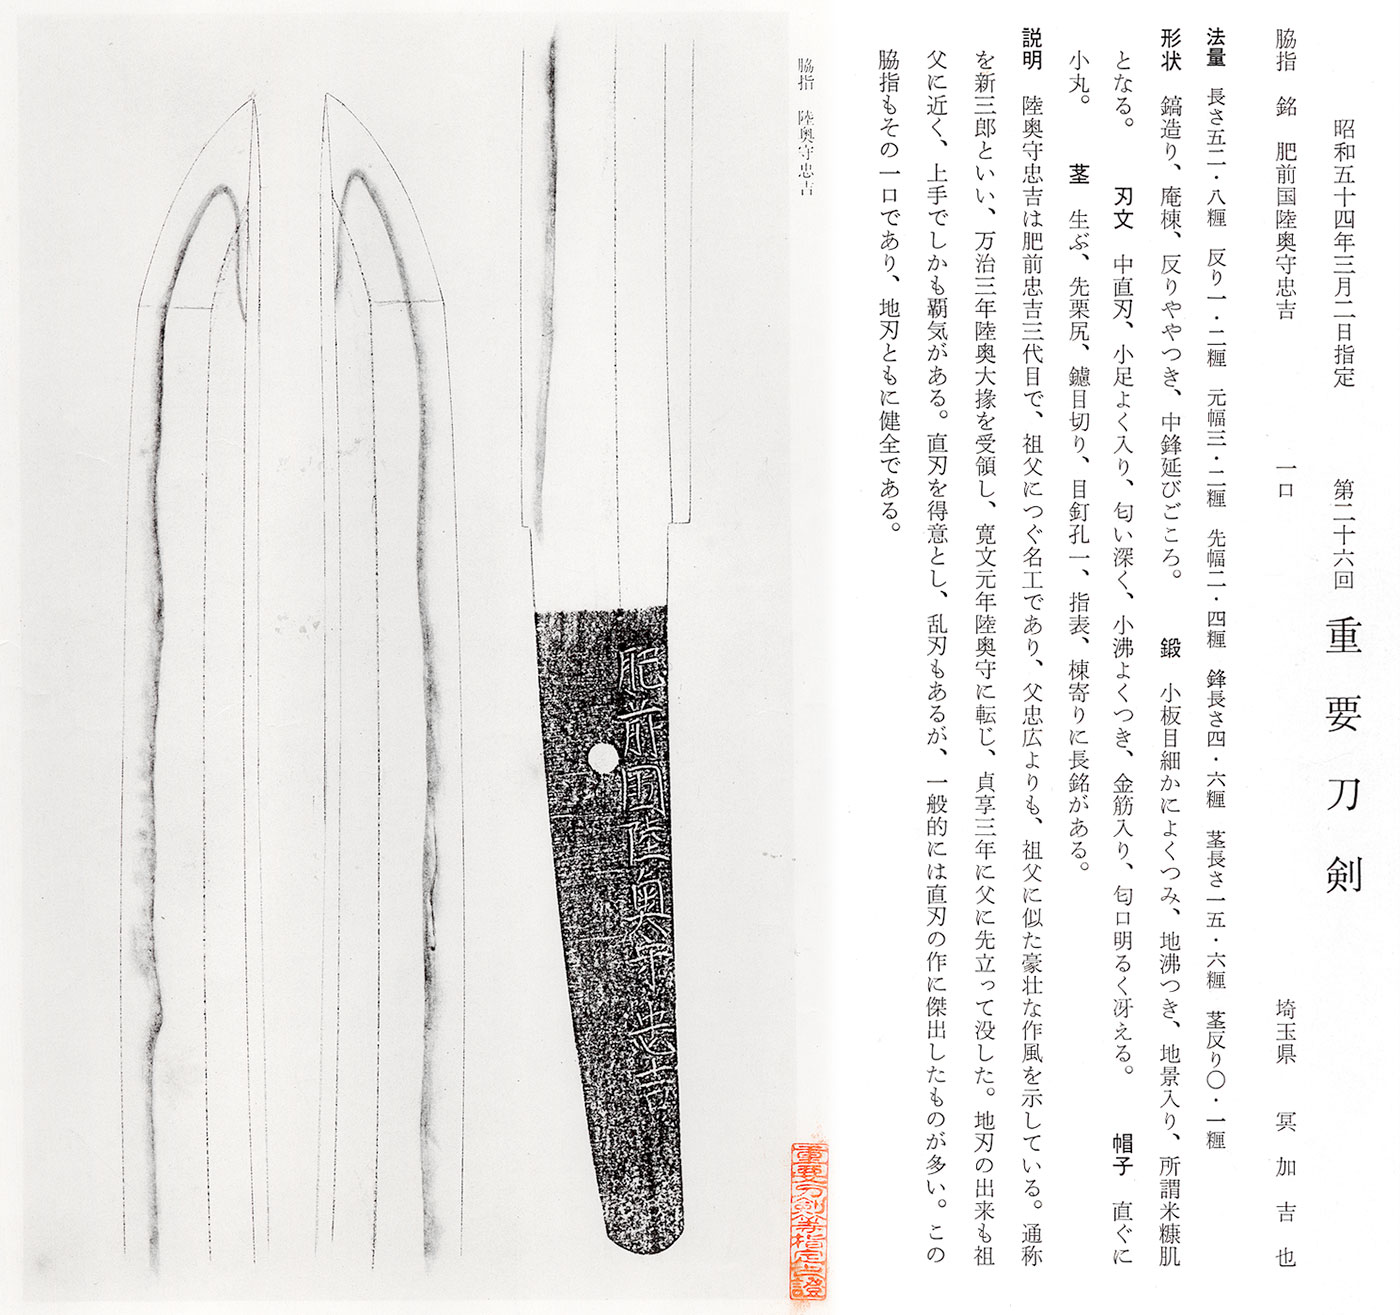 昭和五十四年三月二日指定　第二十六回　重要刀剣
脇指　銘　肥前国陸奥守忠吉　一口　埼玉県　冥加吉也
法量　長さ五二・八糎　反り一・二糎　元幅三・二糎　先幅二・四糎　鋒長さ四・六糎　茎長さ一五・六糎　茎反り〇・一糎
形状　鎬造り、庵棟、反りややつき、中鋒延びごころ。　鍛　小板目細かによくつみ、地沸つき、地景入り、所謂米糠肌
となる。　刃文　中直刃、小足よく入り、匂い深く、小沸よくつき、金筋入り、匂口明るく冴える。　帽子　直ぐに
小丸。　茎　生ぶ、先栗尻、鑢目切り、目釘孔一、指表、棟寄りに長銘がある。
説明　陸奥守忠吉は肥前忠吉三代目で、祖父につぐ名工であり、父忠広よりも、祖父に似た豪壮な作風を示している。通称
を新三郎といい、万治三年陸奥大掾を受領し、寛文元年陸奥守に転じ、貞享三年に父に先立って没した。地刃の出来も祖
父に近く、上手でしかも覇気がある。直刃を得意とし、乱刃もあるが、一般的には直刃の作に傑出したものが多い。この
脇指もその一口であり、地刃ともに健全である。
脇指　陸奥守忠吉
肥前國陸奥守忠吉
重要刀剣等指定之證